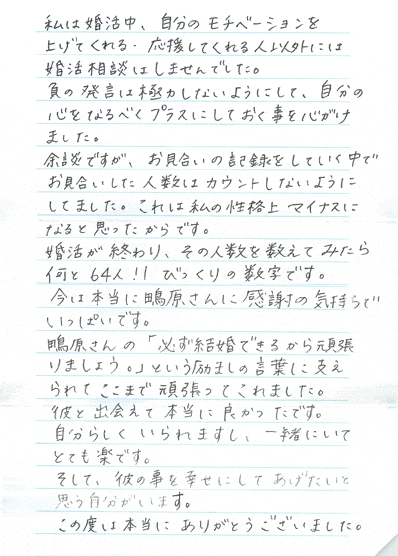 私は婚活中、自分のモチベーションを
上げてくれる・応援してくれる人以外には
婚活相談はしませんでした。
負の発言は極力しないようにして、自分の
心をなるべくプラスにしておく事を心がけ
ました。
余談ですが、お見合いの記録をしていく中で
お見合いした人数はカウントしないように
してました。これは私の性格上マイナスに
なると思ったからです。
婚活が終わり、その人数を数えてみたら
何と64人!! びっくりの数字です。
今は本当に鴨原さんに感謝の気持ちで
いっぱいです。
鴨原さんの「必ず結婚できるから頑張
りましょう。」という励ましの言葉に支え
られてここまで頑張ってこれました。
彼と出会えて本当に良かったです。
自分らしくいられますし、一緒にいて
とても楽です。
そして、彼の事を幸せにしてあげたいと
思う自分がいます。
この度は本当にありがとうございました。